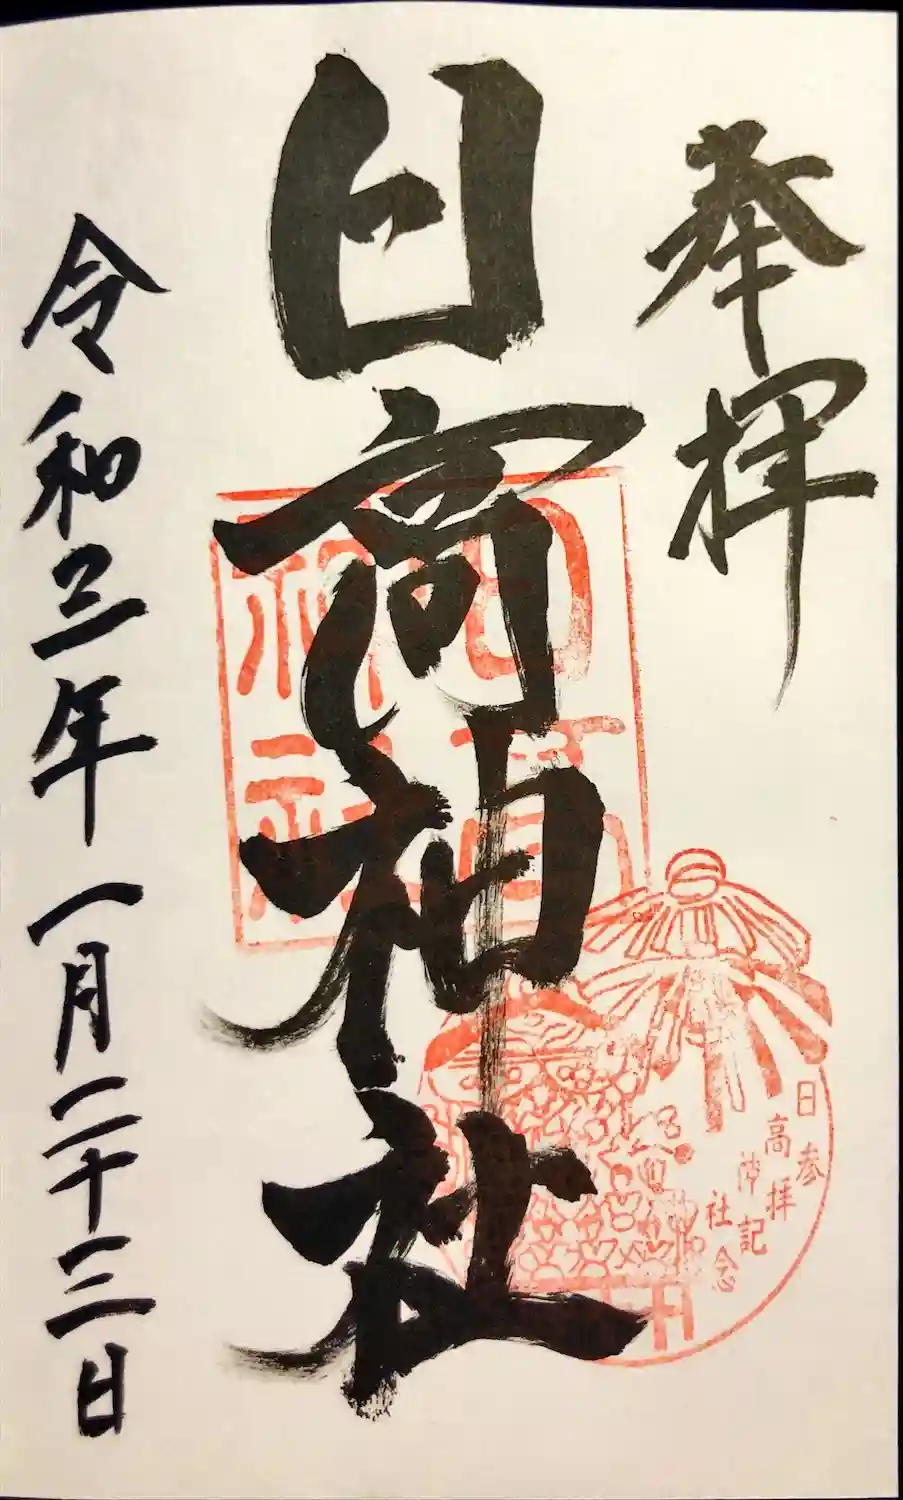 奉拝
日高神社
日高
神社
日高神社
参拝記念
令和三年一月二十三日